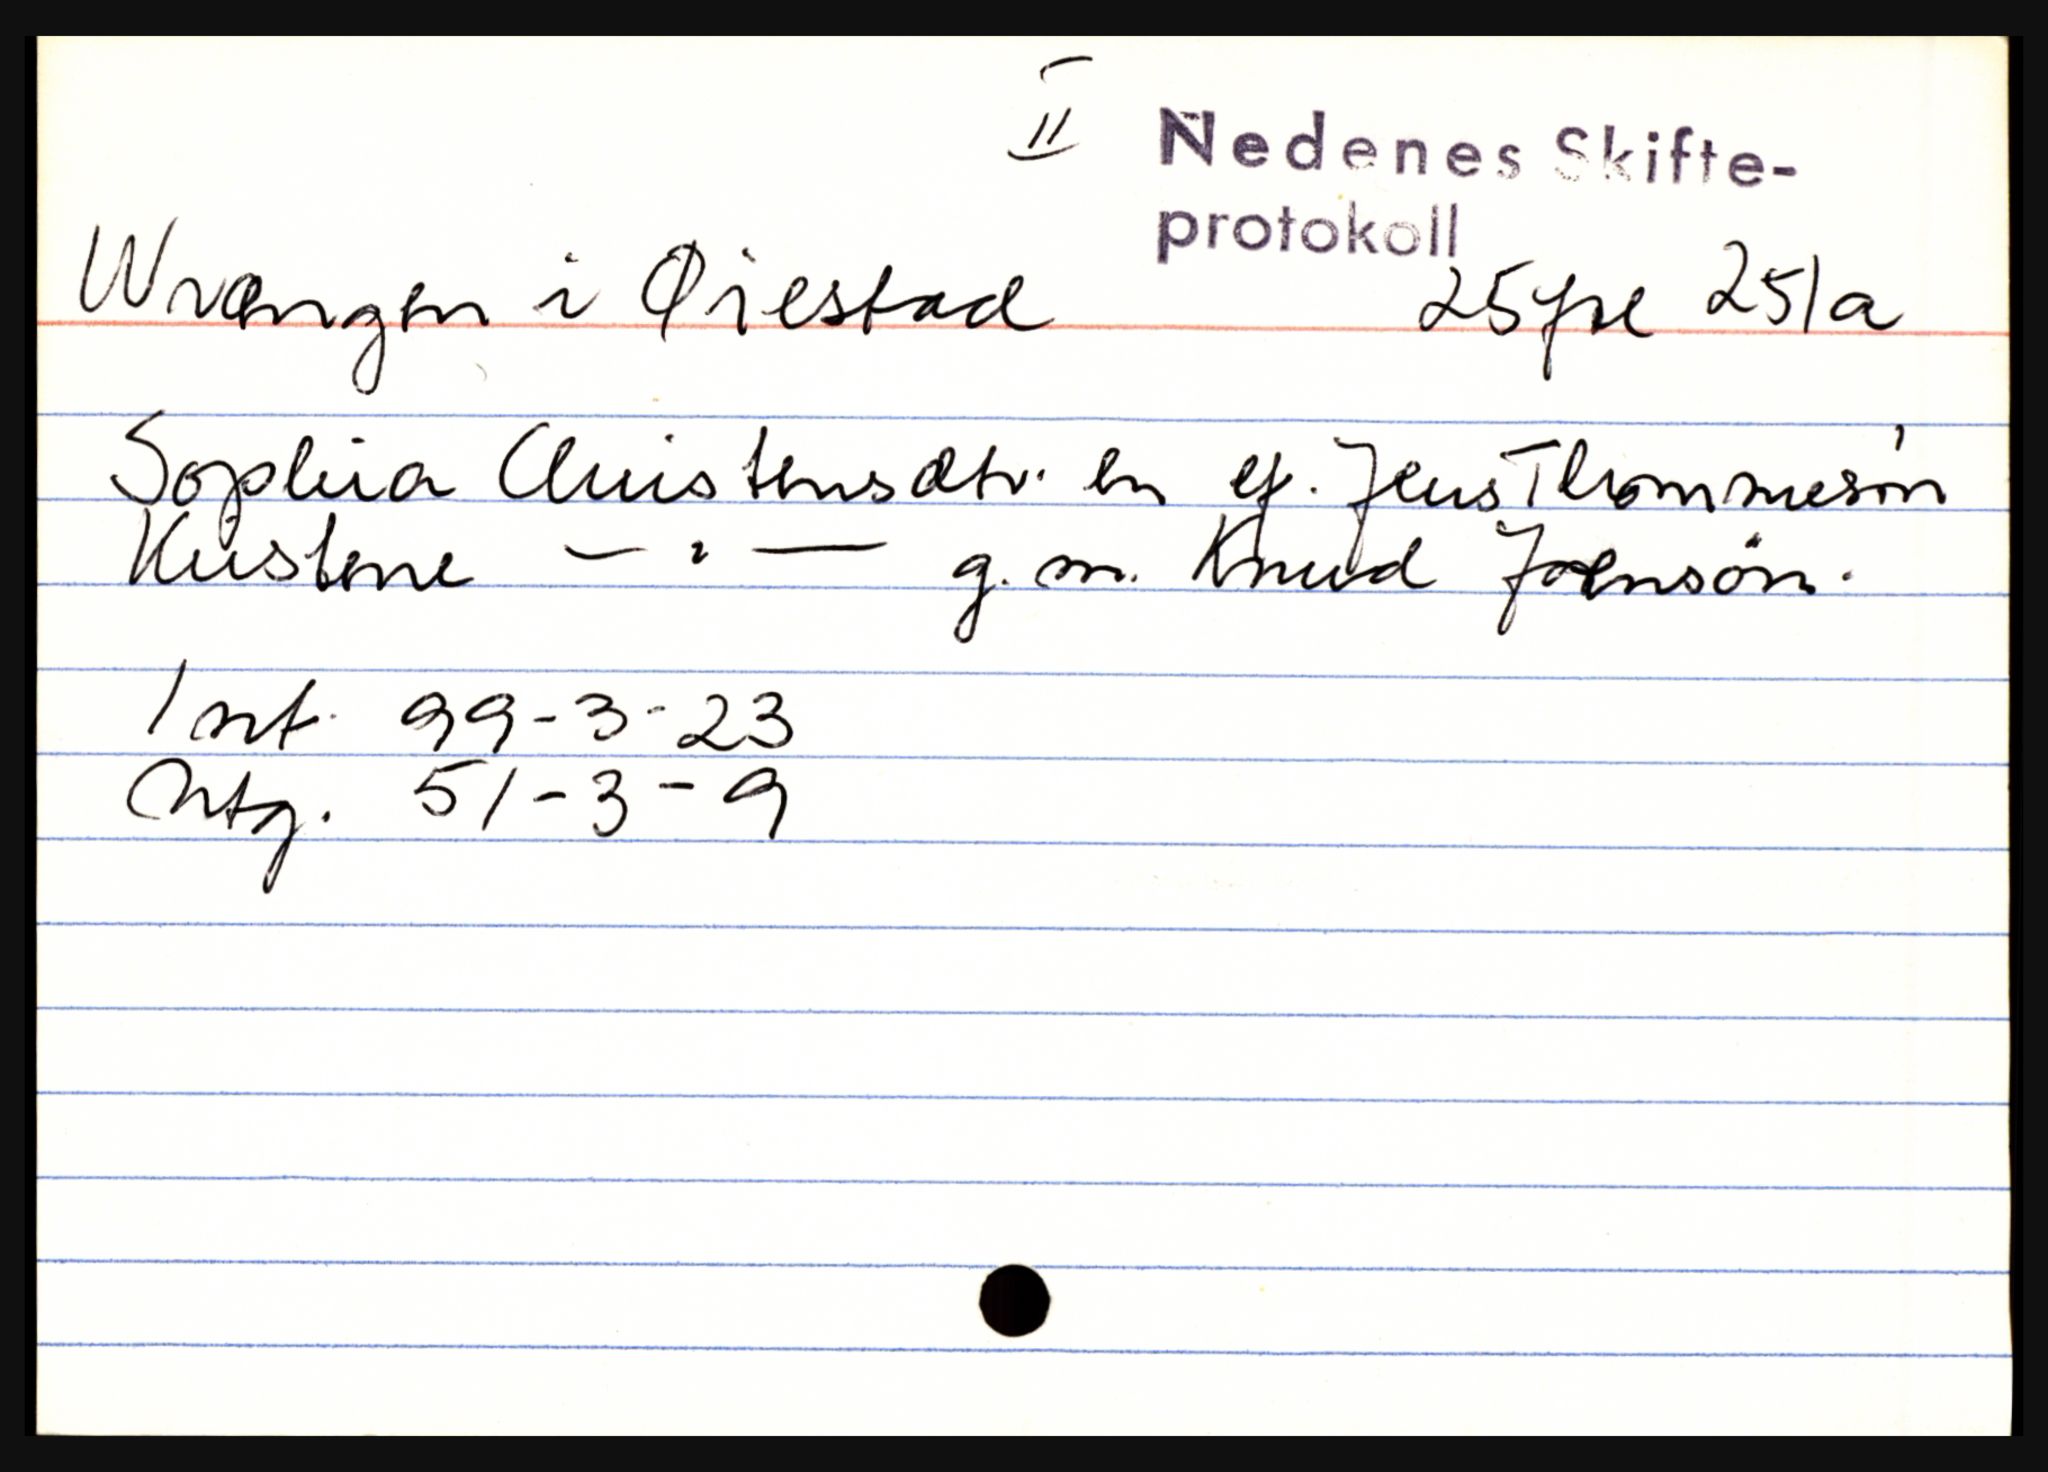 II Nedenes Skifte-
protokoll
Wrængen i Øiestad 25 fre 251a
Sophia Christensdtr. en ef. Jens Thommesøn
Kristene — " — g. m. Knud Joensøn.
Int. 99-3-23
Ntg. 51-3-9